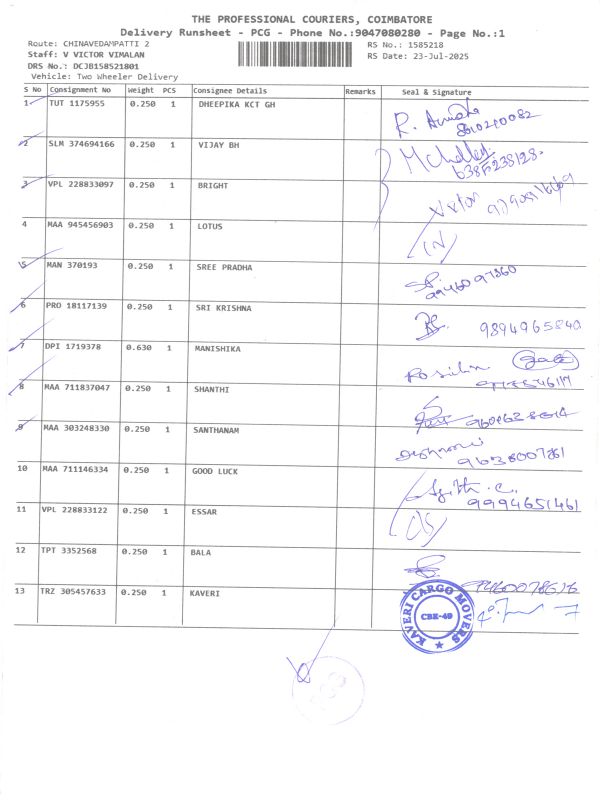 THE PROFESSIONAL COURIERS, COIMBATORE
Delivery Runsheet - PCG - Phone No.:9047080280 - Page No.:1
Route: CHINAVEDAMPATTI 2 RS No.: 1585218
Staff: V VICTOR VIMALAN RS Date: 23-Jul-2025
DRS No.: DCJB158521801
Vehicle: Two Wheeler Delivery
S No Consignment No Weight PCS Consignee Details Remarks Seal & Signature
1 TUT 1175955 0.250 1 DHEEPIKA KCT GH
2 SLM 374694166 0.250 1 VIJAY BH
3 VPL 228833097 0.250 1 BRIGHT
4 MAA 945456903 0.250 1 LOTUS
5 MAN 370193 0.250 1 SREE PRADHA
6 PRO 18117139 0.250 1 SRI KRISHNA 9894965840
7 DPI 1719378 0.630 1 MANISHIKA
8 MAA 711837047 0.250 1 SHANTHI
9 MAA 303248330 0.250 1 SANTHANAM
10 MAA 711146334 0.250 1 GOOD LUCK 9994651461
11 VPL 228833122 0.250 1 ESSAR
12 TPT 3352568 0.250 1 BALA
13 TRZ 305457633 0.250 1 KAVERI
KAVERI CARGO MOVERS
CBE-49